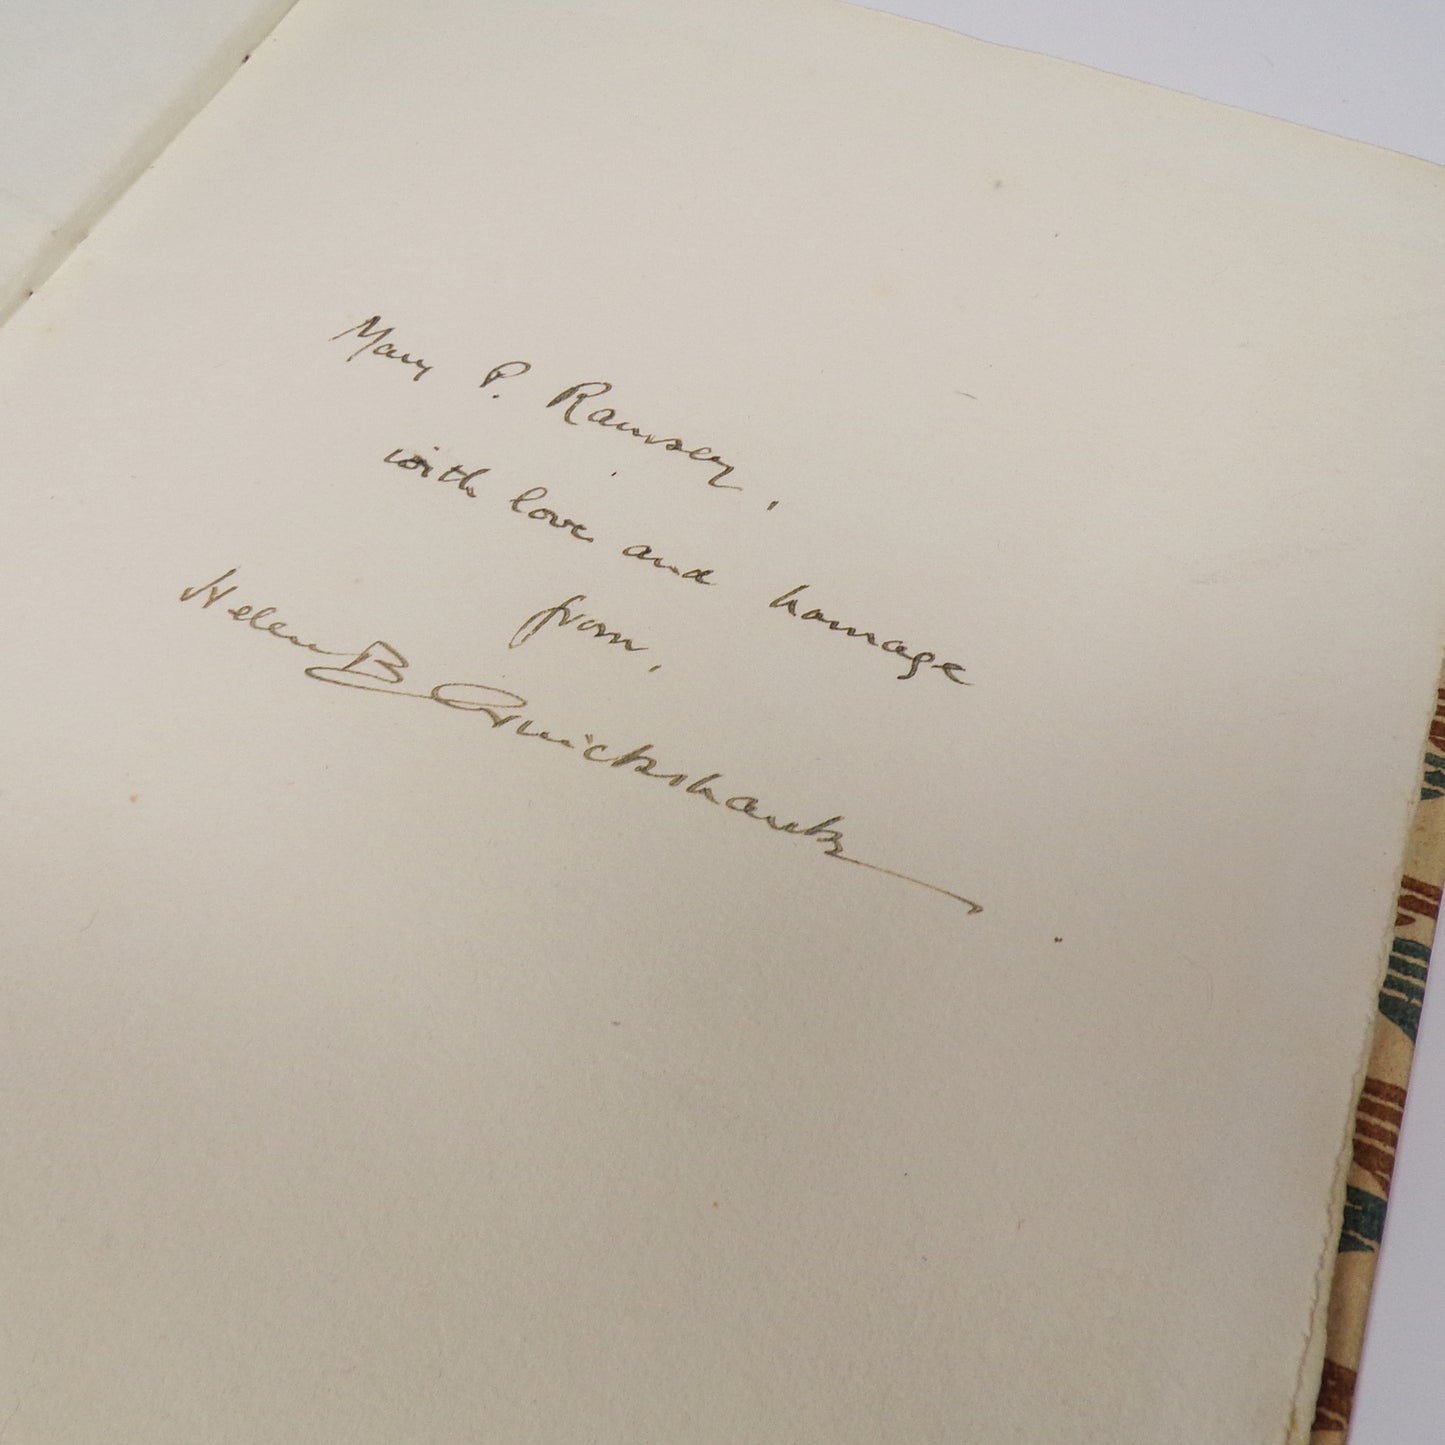 Mary P. Ramsey,
with love and homage
from,
Helen B Cruickshank